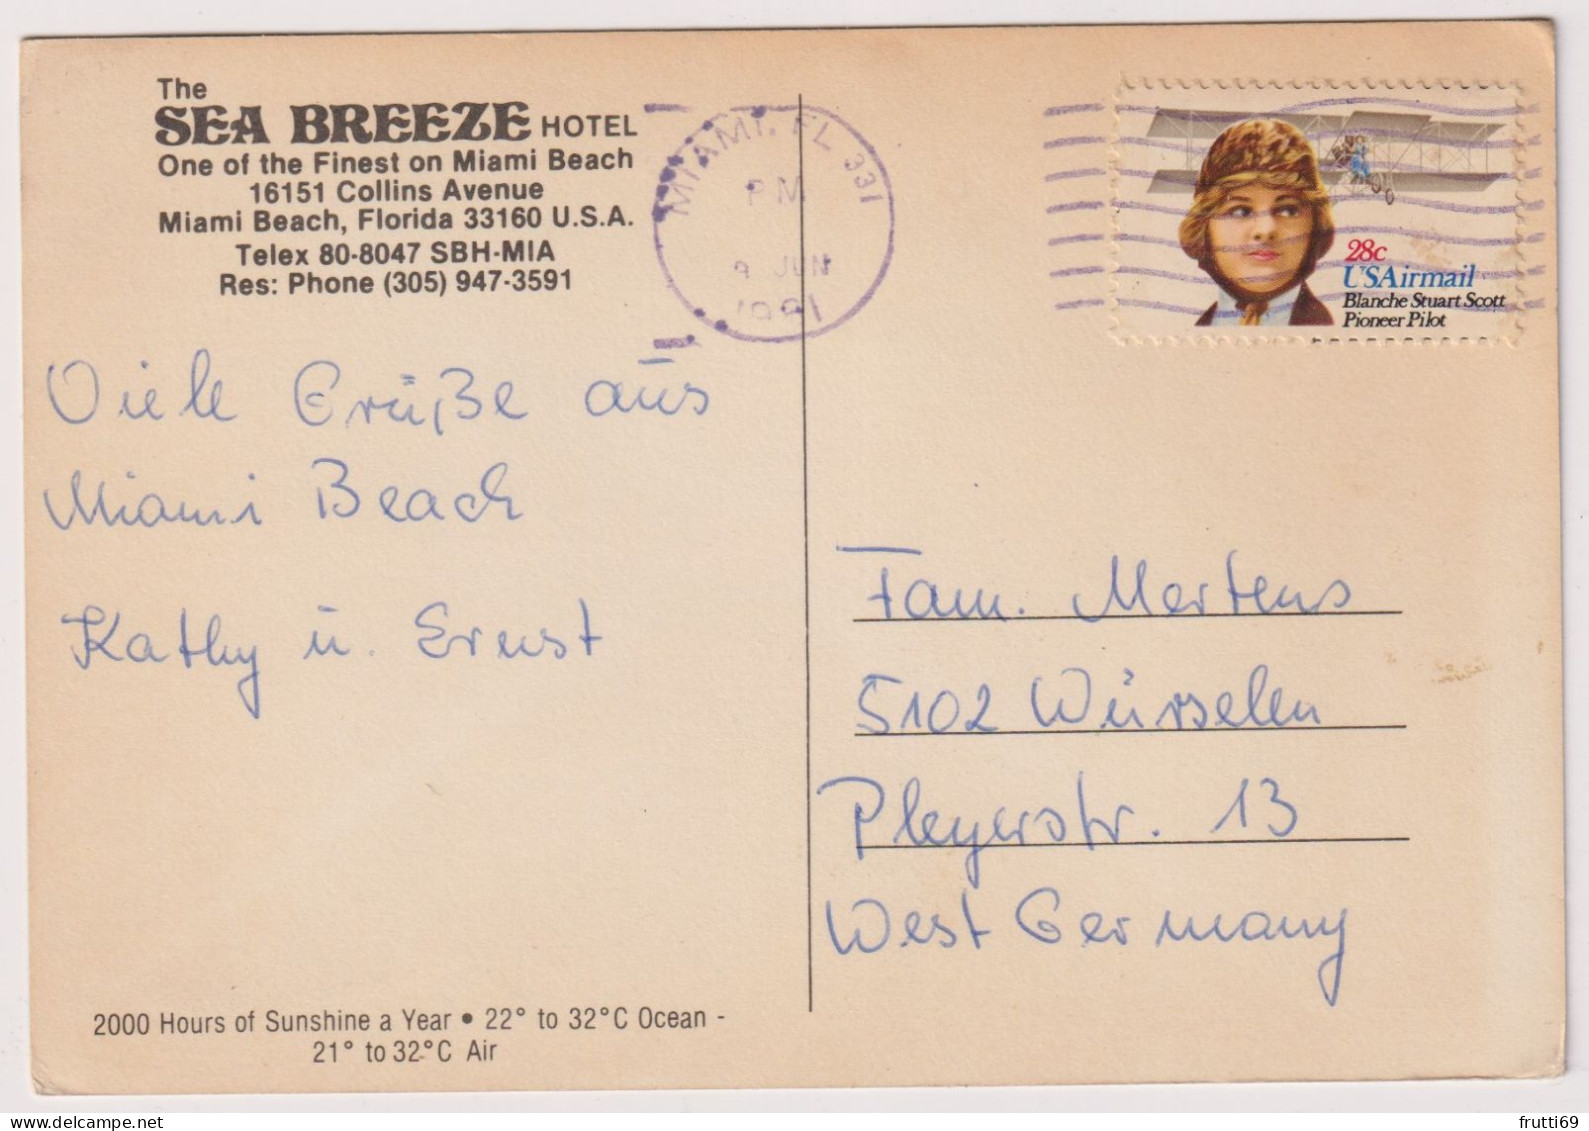 The
SEA BREEZE HOTEL
One of the Finest on Miami Beach
16151 Collins Avenue
Miami Beach, Florida 33160 U.S.A.
Telex 80-8047 SBH-MIA
Res: Phone (305) 947-3591
MIAMI, FL 331
PM
9 JUN
1981
28c
USAirmail
Blanche Stuart Scott
Pioneer Pilot
Viele Grüße aus
Miami Beach
Kathy u. Ernst
Fam. Mertens
5102 Würselen
Pleyerstr. 13
West Germany
2000 Hours of Sunshine a Year • 22° to 32°C Ocean -
21° to 32°C Air
frutti69